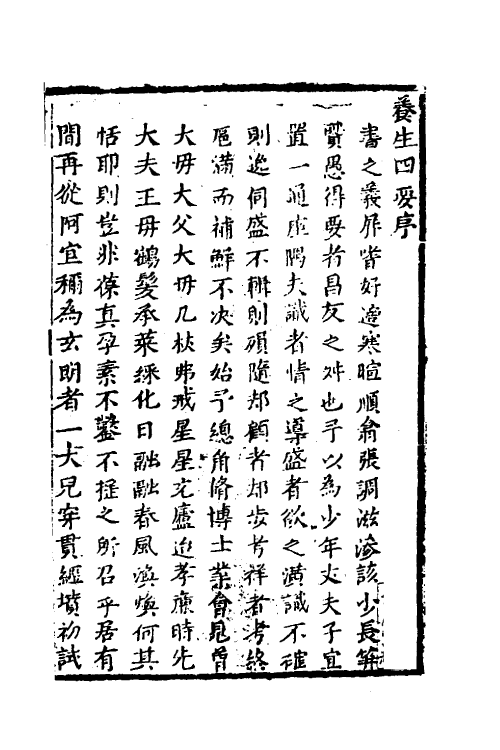 養生四要序
書之義厈嗜好適寒暄順翕張調滋滲該少長筭
賢愚得要者昌友之戕也予以為少年丈夫子宜
置一通座隅夫識者情之導盛者欲之潢識不確
則逸伺盛不辨則殞隨却顧者却步考祥者考終
巵滿而補鮮不決矣始予總角脩博士業會見曾
大母大父大母几杖弗戒星星充廬迨孝廉時先
大夫王母鶴髮承萊綵化日融融春風渙煥何其
恬耶則豈非葆真孕素不鑿不挻之所召乎居有
間再從阿宜稱為玄朗者一大兄穿貫經墳初試